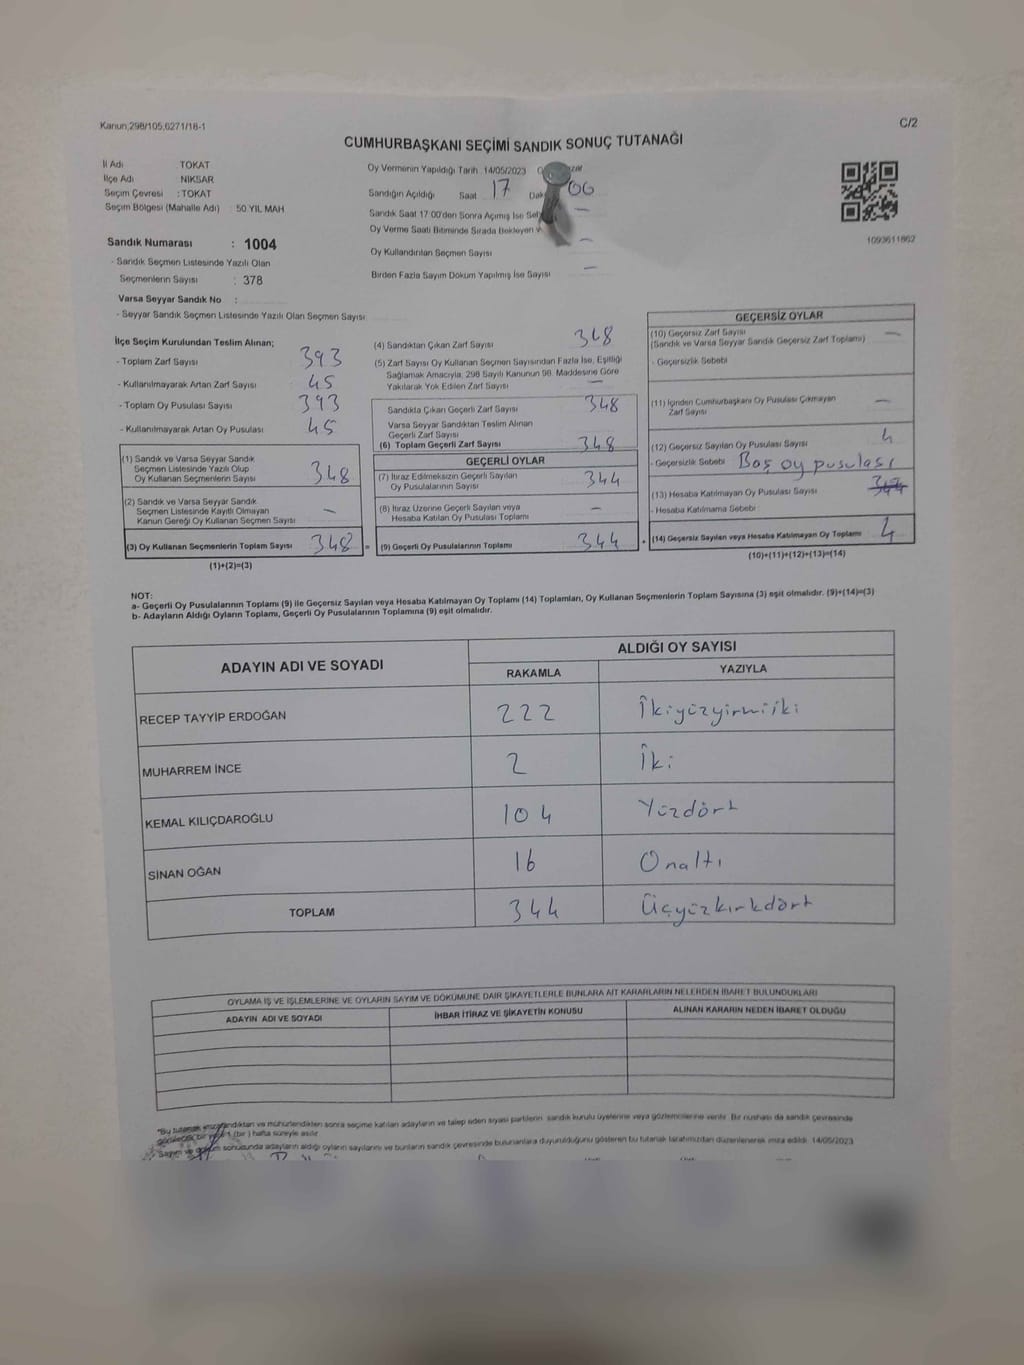 Kanun,298/105,6271/18-1
C/2
CUMHURBAŞKANI SEÇİMİ SANDIK SONUÇ TUTANAĞI
İl Adı : TOKAT
İlçe Adı : NİKSAR
Seçim Çevresi : TOKAT
Seçim Bölgesi (Mahalle Adı) : 50 YIL MAH
Oy Vermenin Yapıldığı Tarih 14/05/2023
Sandığın Açıldığı Saat 17 00
Sandık Saat 17:00'den Sonra Açılmış İse
Oy Verme Saati Bitiminde Sırada Bekleyen
Oy Kullandırılan Seçmen Sayısı –
Birden Fazla Sayım Döküm Yapılmış İse Sayısı –
1093611862
Sandık Numarası : 1004
- Sandık Seçmen Listesinde Yazılı Olan
Seçmenlerin Sayısı : 378
Varsa Seyyar Sandık No :
- Seyyar Sandık Seçmen Listesinde Yazılı Olan Seçmen Sayısı
İlçe Seçim Kurulundan Teslim Alınan;
- Toplam Zarf Sayısı 393
- Kullanılmayarak Artan Zarf Sayısı 45
- Toplam Oy Pusulası Sayısı 393
- Kullanılmayarak Artan Oy Pusulası 45
(1) Sandık ve Varsa Seyyar Sandık
Seçmen Listesinde Yazılı Olup
Oy Kullanan Seçmenlerin Sayısı 348
(2) Sandık ve Varsa Seyyar Sandık
Seçmen Listesinde Kayıtlı Olmayan
Kanun Gereği Oy Kullanan Seçmen Sayısı –
(3) Oy Kullanan Seçmenlerin Toplam Sayısı 348 =
(1)+(2)=(3)
(4) Sandıktan Çıkan Zarf Sayısı 348
(5) Zarf Sayısı Oy Kullanan Seçmen Sayısından Fazla İse, Eşitliği
Sağlamak Amacıyla, 298 Sayılı Kanunun 98. Maddesine Göre
Yakılarak Yok Edilen Zarf Sayısı –
Sandıkta Çıkan Geçerli Zarf Sayısı 348
Varsa Seyyar Sandıktan Teslim Alınan
Geçerli Zarf Sayısı
(6) Toplam Geçerli Zarf Sayısı 348
GEÇERLİ OYLAR
(7) İtiraz Edilmeksizin Geçerli Sayılan
Oy Pusulalarının Sayısı 344
(8) İtiraz Üzerine Geçerli Sayılan veya
Hesaba Katılan Oy Pusulası Toplamı –
(9) Geçerli Oy Pusulalarının Toplamı 344 +
GEÇERSİZ OYLAR
(10) Geçersiz Zarf Sayısı –
(Sandık ve Varsa Seyyar Sandık Geçersiz Zarf Toplamı)
- Geçersizlik Sebebi
(11) İçinden Cumhurbaşkanı Oy Pusulası Çıkmayan
Zarf Sayısı –
(12) Geçersiz Sayılan Oy Pusulası Sayısı 4
- Geçersizlik Sebebi Boş oy pusulası
(13) Hesaba Katılmayan Oy Pusulası Sayısı
- Hesaba Katılmama Sebebi
(14) Geçersiz Sayılan veya Hesaba Katılmayan Oy Toplamı 4
(10)+(11)+(12)+(13)=(14)
NOT:
a- Geçerli Oy Pusulalarının Toplamı (9) ile Geçersiz Sayılan veya Hesaba Katılmayan Oy Toplamı (14) Toplamları, Oy Kullanan Seçmenlerin Toplam Sayısına (3) eşit olmalıdır. (9)+(14)=(3)
b- Adayların Aldığı Oyların Toplamı, Geçerli Oy Pusulalarının Toplamına (9) eşit olmalıdır.
ADAYIN ADI VE SOYADI ALDIĞI OY SAYISI
RAKAMLA YAZIYLA
RECEP TAYYİP ERDOĞAN 222 İkiyüzyirmiiki
MUHARREM İNCE 2 İki
KEMAL KILIÇDAROĞLU 104 Yüzdört
SİNAN OĞAN 16 Onaltı
TOPLAM 344 Üçyüzkırkdört
OYLAMA İŞ VE İŞLEMLERİNE VE OYLARIN SAYIM VE DÖKÜMÜNE DAİR ŞİKAYETLERLE BUNLARA AİT KARARLARIN NELERDEN İBARET BULUNDUKLARI
ADAYIN ADI VE SOYADI İHBAR İTİRAZ VE ŞİKAYETİN KONUSU ALINAN KARARIN NEDEN İBARET OLDUĞU
*Bu tutanak imzalandıktan ve mühürlendikten sonra seçime katılan adayların ve talep eden siyasi partilerin sandık kurulu üyelerine veya gözlemcilerine verilir. Bir nüshası da sandık çevresinde
görülecek bir yere 1 (bir) hafta süreyle asılır.
Sayım ve döküm sonucunda adayların aldığı oyların sayılarını ve bunların sandık çevresinde bulunanlara duyurulduğunu gösteren bu tutanak tarafımızdan düzenlenerek imza edildi. 14/05/2023